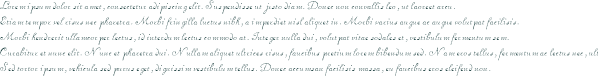 Lorem ipsum dolor sit amet, consectetur adipiscing elit. Suspendisse ut justo diam. Donec non convallis leo, ut laoreet arcu.
Etiam tempor vel risus nec pharetra. Morbi fringilla luctus nibh, a imperdiet nisl aliquet in. Morbi varius augue ac augue volutpat facilisis.
Morbi hendrerit ullamcorper lectus, id interdum lectus commodo at. Integer nulla dui, volutpat vitae sodales et, vestibulum fermentum sem.
Curabitur at nunc elit. Nunc et pharetra dui. Nullam aliquet ultricies risus, faucibus pretium lorem bibendum sed. Nam eros tellus, fermentum ac lectus nec,
Sed tortor ipsum, vehicula sed purus eget, dignissim vestibulum tellus. Donec accumsan facilisis massa, eu faucibus eros eleifend non.